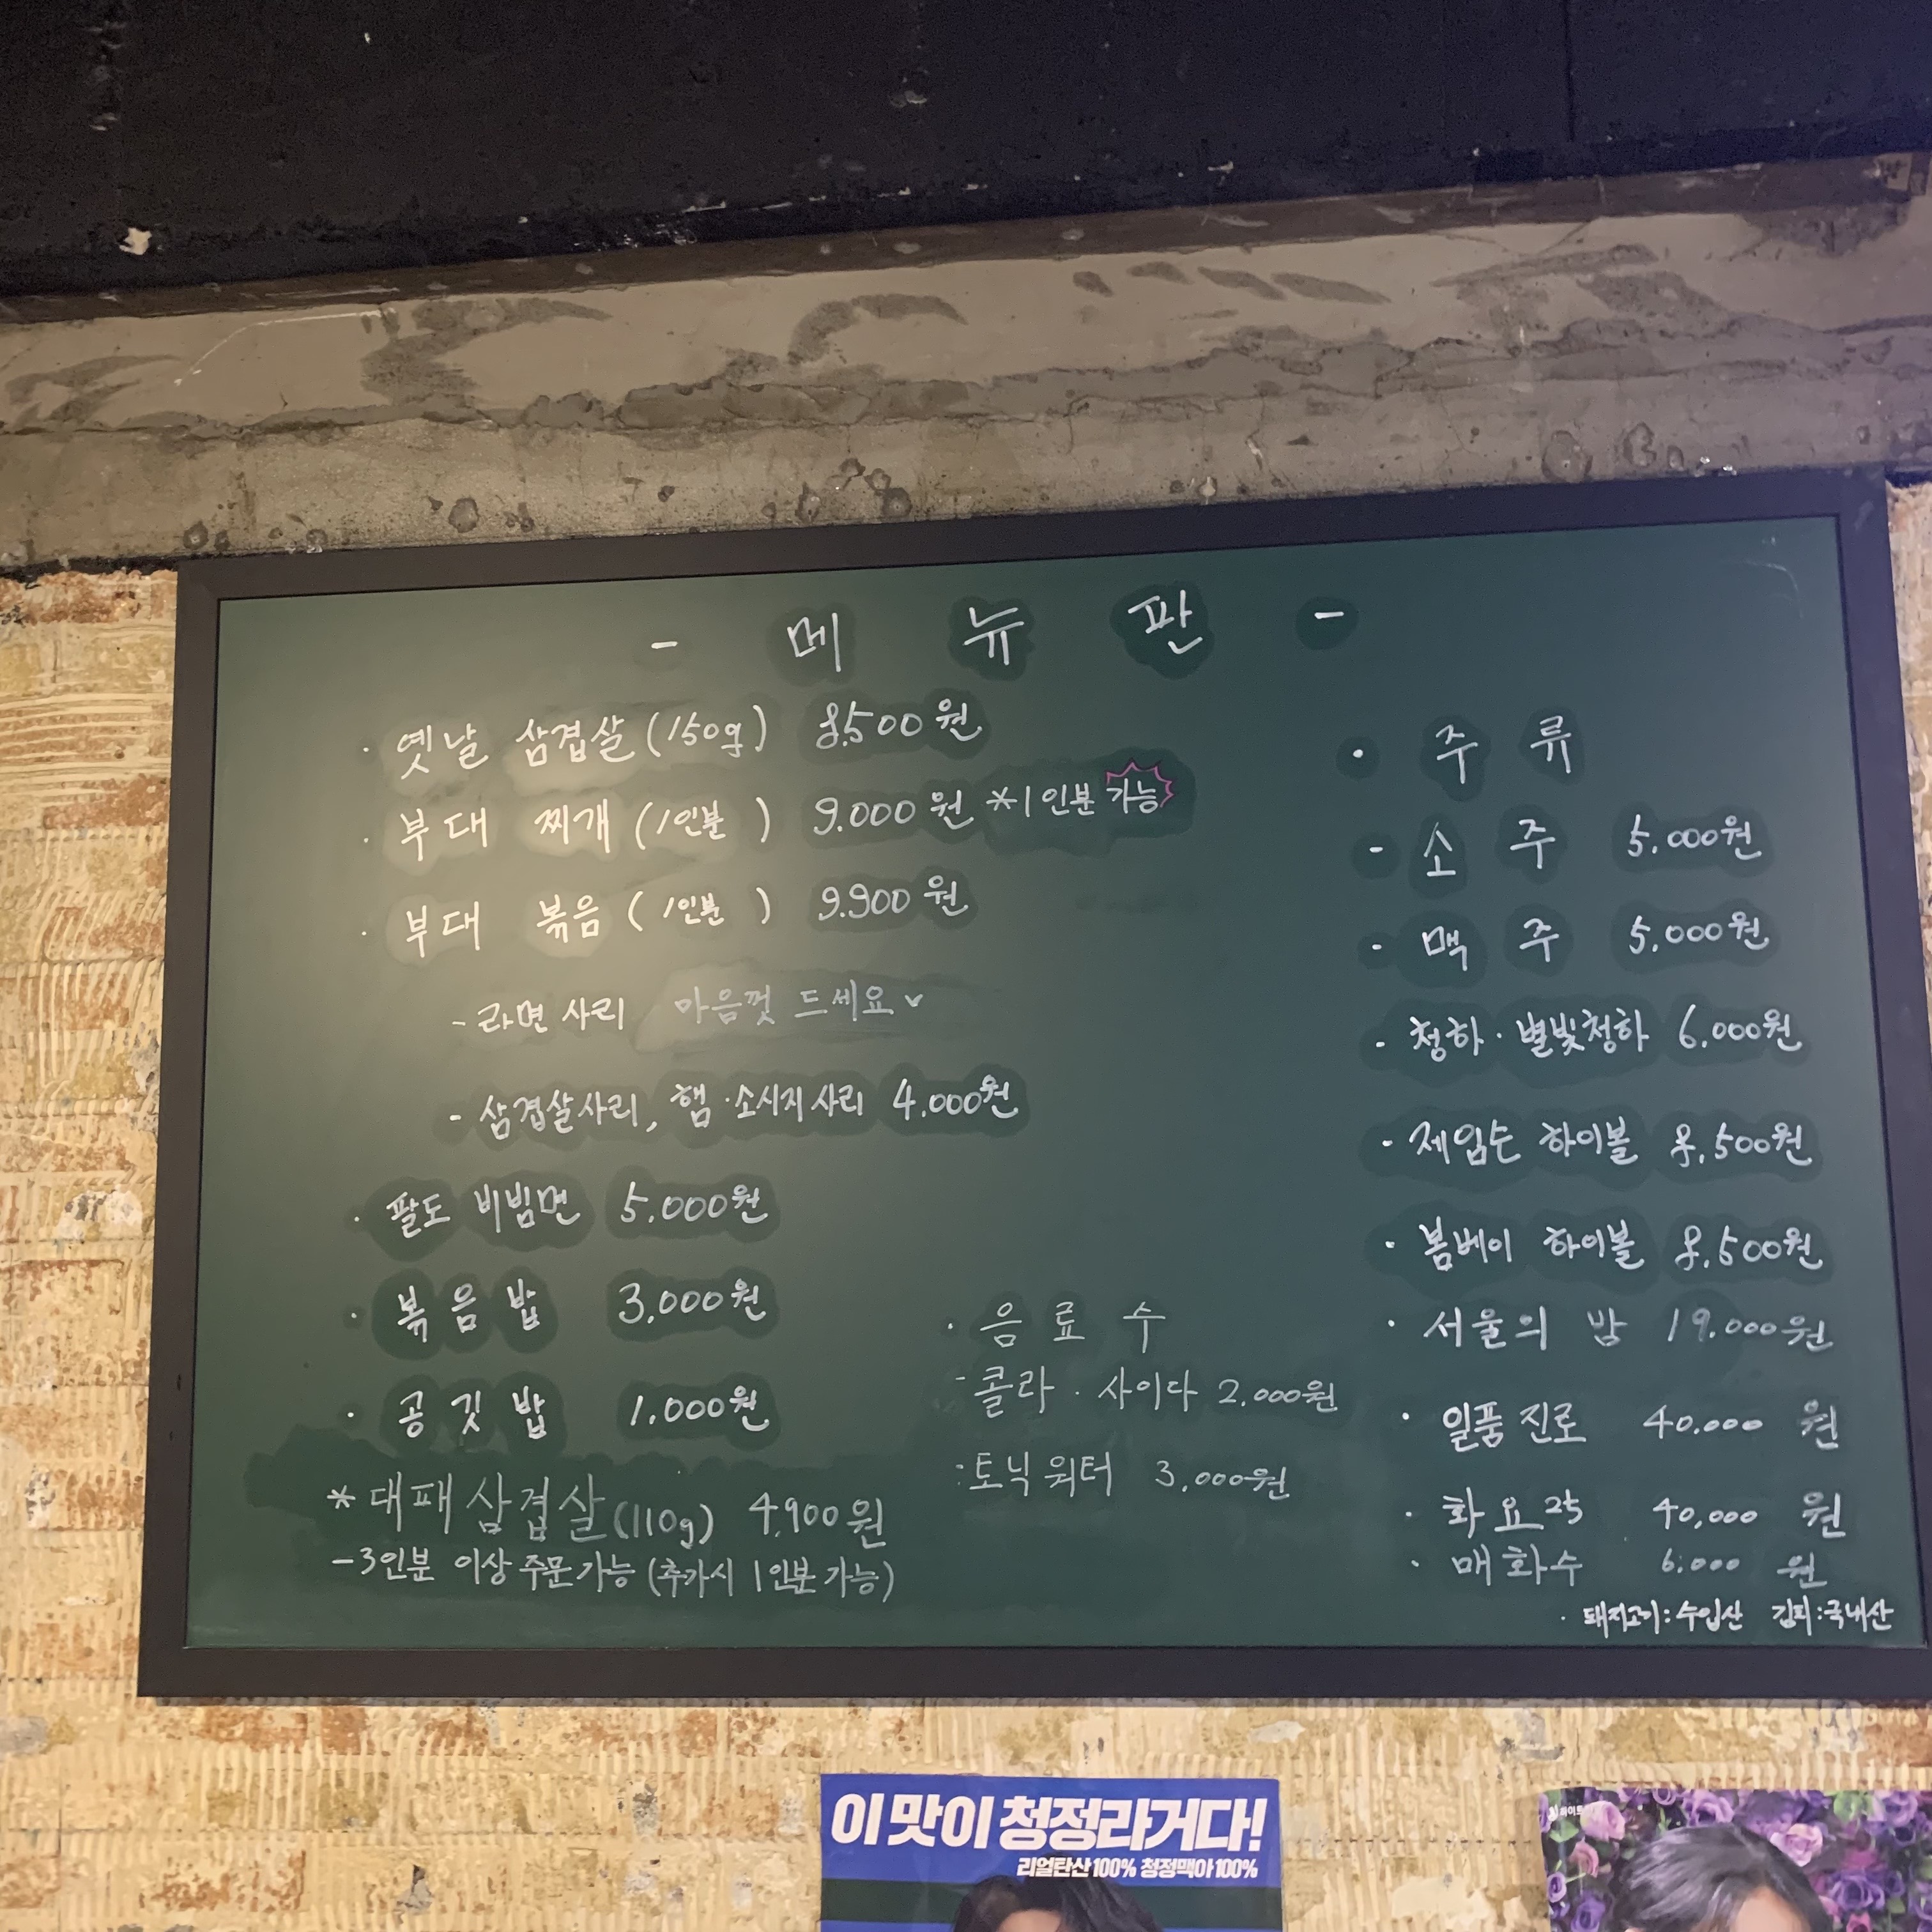 - 메 뉴 판 -
· 옛날 삼겹살 (150g) 8,500원
· 부대 찌개 (1인분) 9.000원 *1인분 가능
· 부대 볶음 (1인분) 9.900원
- 라면 사리 마음껏 드세요
- 삼겹살사리, 햄·소시지사리 4.000원
· 팔도 비빔면 5.000원
· 볶음밥 3.000원
· 공깃밥 1.000원
* 대패삼겹살(110g) 4,900원
- 3인분 이상 주문가능 (추가시 1인분 가능)
· 음료수
- 콜라 · 사이다 2.000원
- 토닉워터 3.000원
· 주류
- 소주 5.000원
- 맥주 5.000원
- 청하 · 별빛청하 6.000원
- 제임슨 하이볼 8.500원
· 봄베이 하이볼 8.500원
· 서울의 밤 19.000원
· 일품 진로 40.000원
· 화요25 40,000원
· 매화수 6.000원
· 돼지고기: 수입산 김치: 국내산
이 맛이 청정라거다!
리얼탄산100% 청정맥아100%